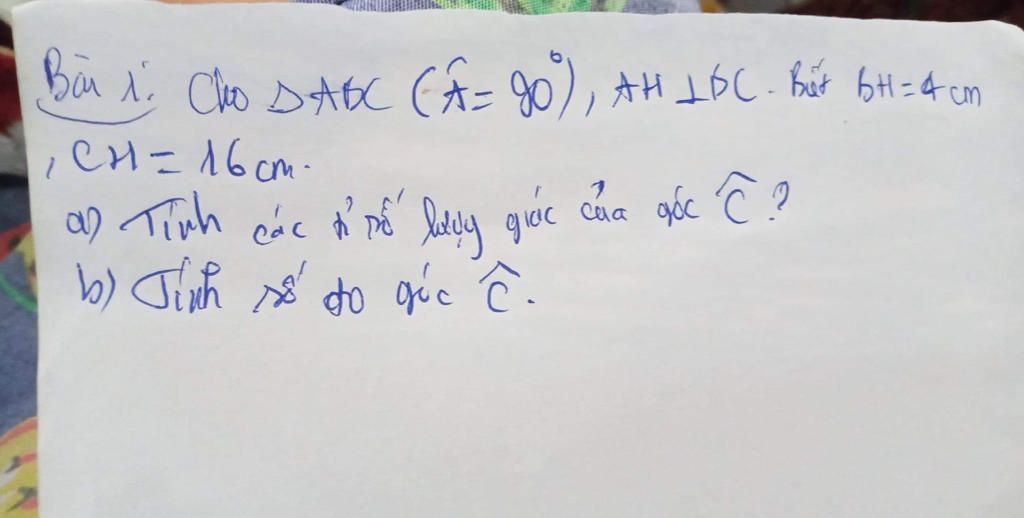 Bài 1: Cho △ABC (Â = 90°), AH ⊥ BC. Biết BH = 4 cm
, CH = 16 cm.
a) Tính các tỉ số lượng giác của góc Ĉ ?
b) Tính số đo góc Ĉ.